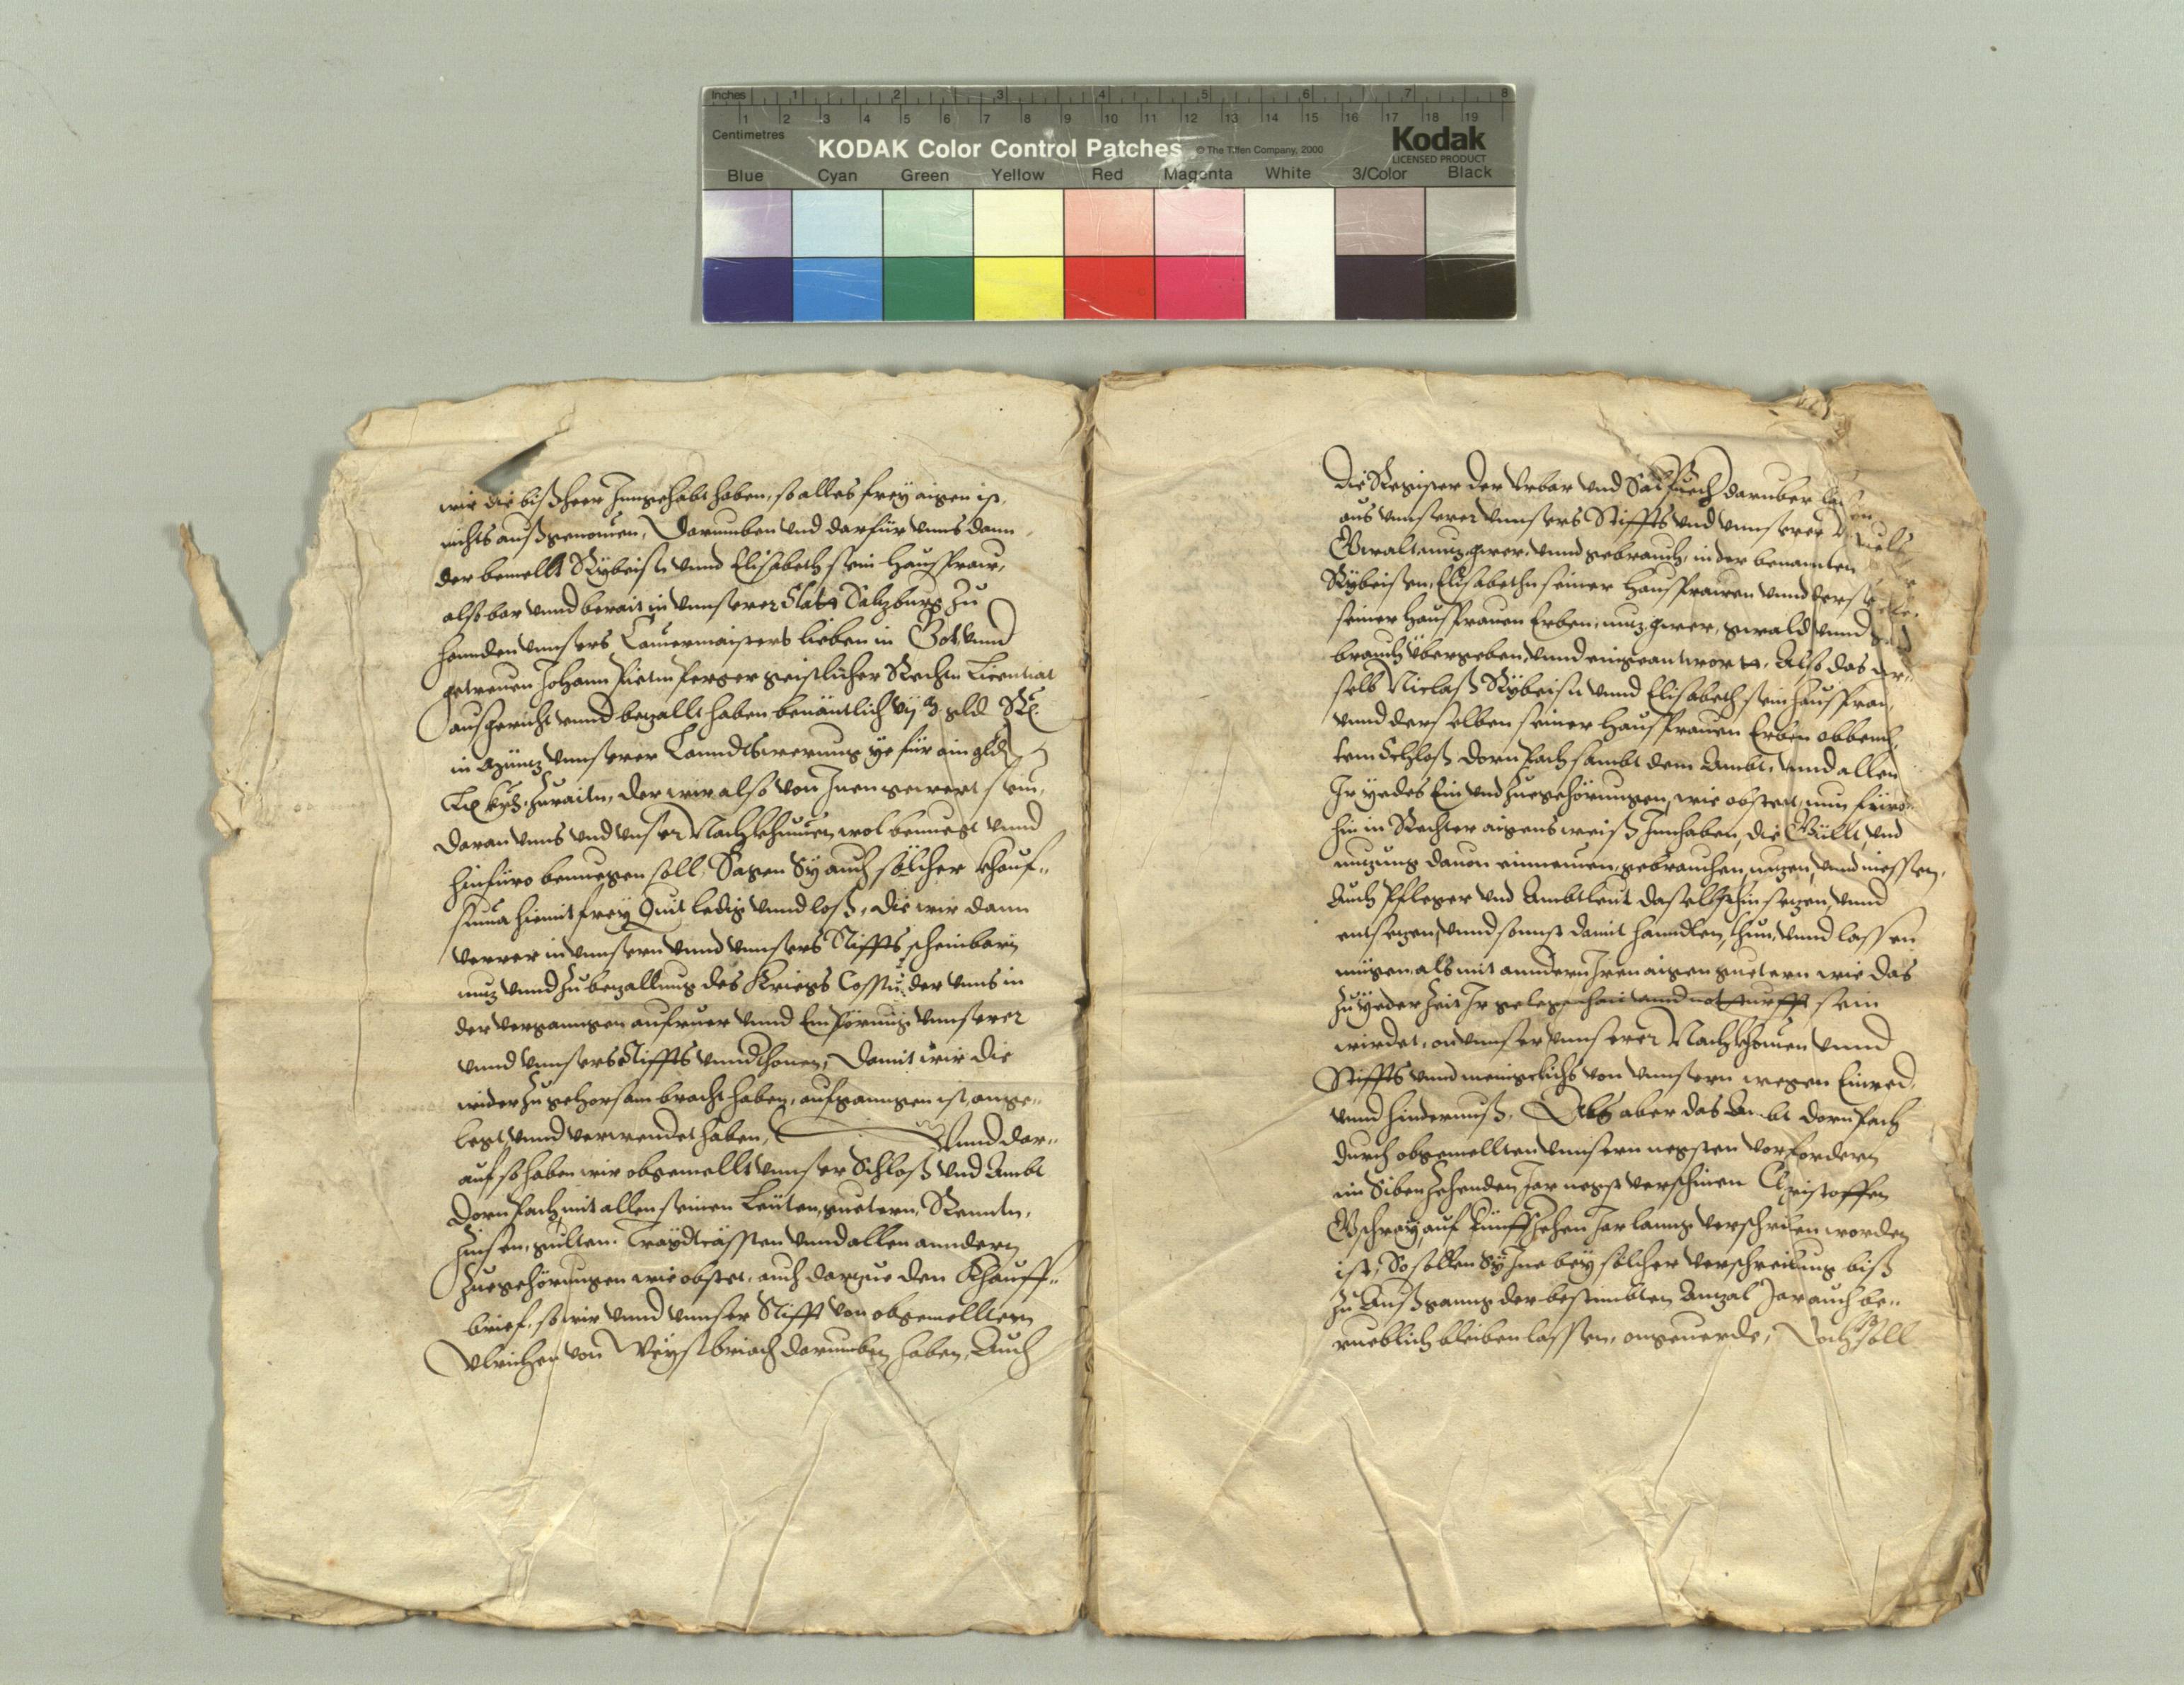 Inches 1 2 3 4 5 6 7 8
1 2 3 4 5 6 7 8 9 10 11 12 13 14 15 16 17 18 19
Centimetres
KODAK Color Control Patches © The Tiffen Company, 2000 Kodak
LICENSED PRODUCT
Blue Cyan Green Yellow Red Magenta White 3/Color Black
wie die bißheer Inngehabt haben, so alles frey aigen ist,
nichts außgenomen, Darumben vnd darfür vnns dann
der bemellt Rybeisn vnnd Elisabeth sein Hausfraw,
also bar vnnd berait in vnnserer Stat Salzburg zu
hannden vnnsers Camermaisters lieben in Got vnnd
getreuen Johann geistlicher Rechtn Licentiat
ausgericht vnnd bezallt haben benäntlich gld
in Münz vnnserer Lanndtswerung ye für ain gld
zuraitn, der wir also von Inen gewert sein,
daran vnns vnd vnser Nachkhumen wol benuegt vnnd
hinfüro benuegen soll, Sagen Sy auch sölcher khauf-
suma hiemit frey Quit ledig vnnd loß, die wir dann
verrer in vnnsern vnnd vnnsers Stiffts scheinbarn
nuz vnnd zu bezallung des Kriegs Cosstn, der vnns in
der vergangen aufruer vnnd Emporung vnnserer
vnnd vnnsers Stiffts vnnderthonen, Damit wir die
wider zu gehorsam bracht haben, aufgangen ist, ange-
legt vnnd verwendet haben, Vnnd dar-
auf so haben wir obgemellt vnnser Schloß vnd Ambt
Dornpach mit allen seinen Leüten, guetern, Renntn,
Zinsen, gülten, Traydcässten vnnd allen anndern
Zuegehörungen wie obstet, auch darzue den Khauff-
brief, so wir vnnd vnnser Stifft von obgemelltem
Vlrichen von Weysbriach darumben haben, Auch
Die Register der Vrbar vnd Salbuech daruber
aus vnnserer vnnsers Stiffts vnd vnnserer
Gwalt nuz, gwer, vnnd gebrauch, in der benannten
Rybeisen, Elisabethn seiner Hausfrawen vnnd
seiner Hausfrauen Erben, nuz, gwer, gwald vnnd
brauch übergeben, vnnd eingeantwort, Also das der-
selb Niclaß Rybeisn vnnd Elisabeth sein Hausfrau,
vnnd derselben seiner Hausfrauen Erben
Schloß Dornpach sambt dem Ambt, vnnd allen
Ir yedes Ein vnd Zuegehörungen, wie obstet, nun füro
hin in Rechter aigens weiß Innhaben, die Güllt, vnd
nuzung dauon einnemen, gebrauchen, nuzen vnnd niessen,
Auch Pfleger vnd Ambtleut daselbsthin sezen, vnnd
entsezen, vnnd sonnst damit hanndlen, thun, vnnd lassen
mügen, als mit anndern Iren aigen guetern wie das
zu yeder zeit Ir gelegenhait vnnd notturfft sein
wirdet, on vnnser vnnserer Nachkhomen vnnd
Stiffts vnnd menigclichs von vnnsern wegen Einred,
vnnd hindernuß, Als aber das Ambt Dornpach
durch obgemellten vnnsern negsten Vorfordern
im Sibenzehenden Jar negst verschinen Christoffen
Gschray auf Fünffzehen Jar lanng verschriben worden
ist, So sollen Sy Ine bey sölcher verschreibung biß
zu Außgang der bestimbten Anzal Jar auch be-
rueblich bleiben lassen, ongeuerde, Doch soll